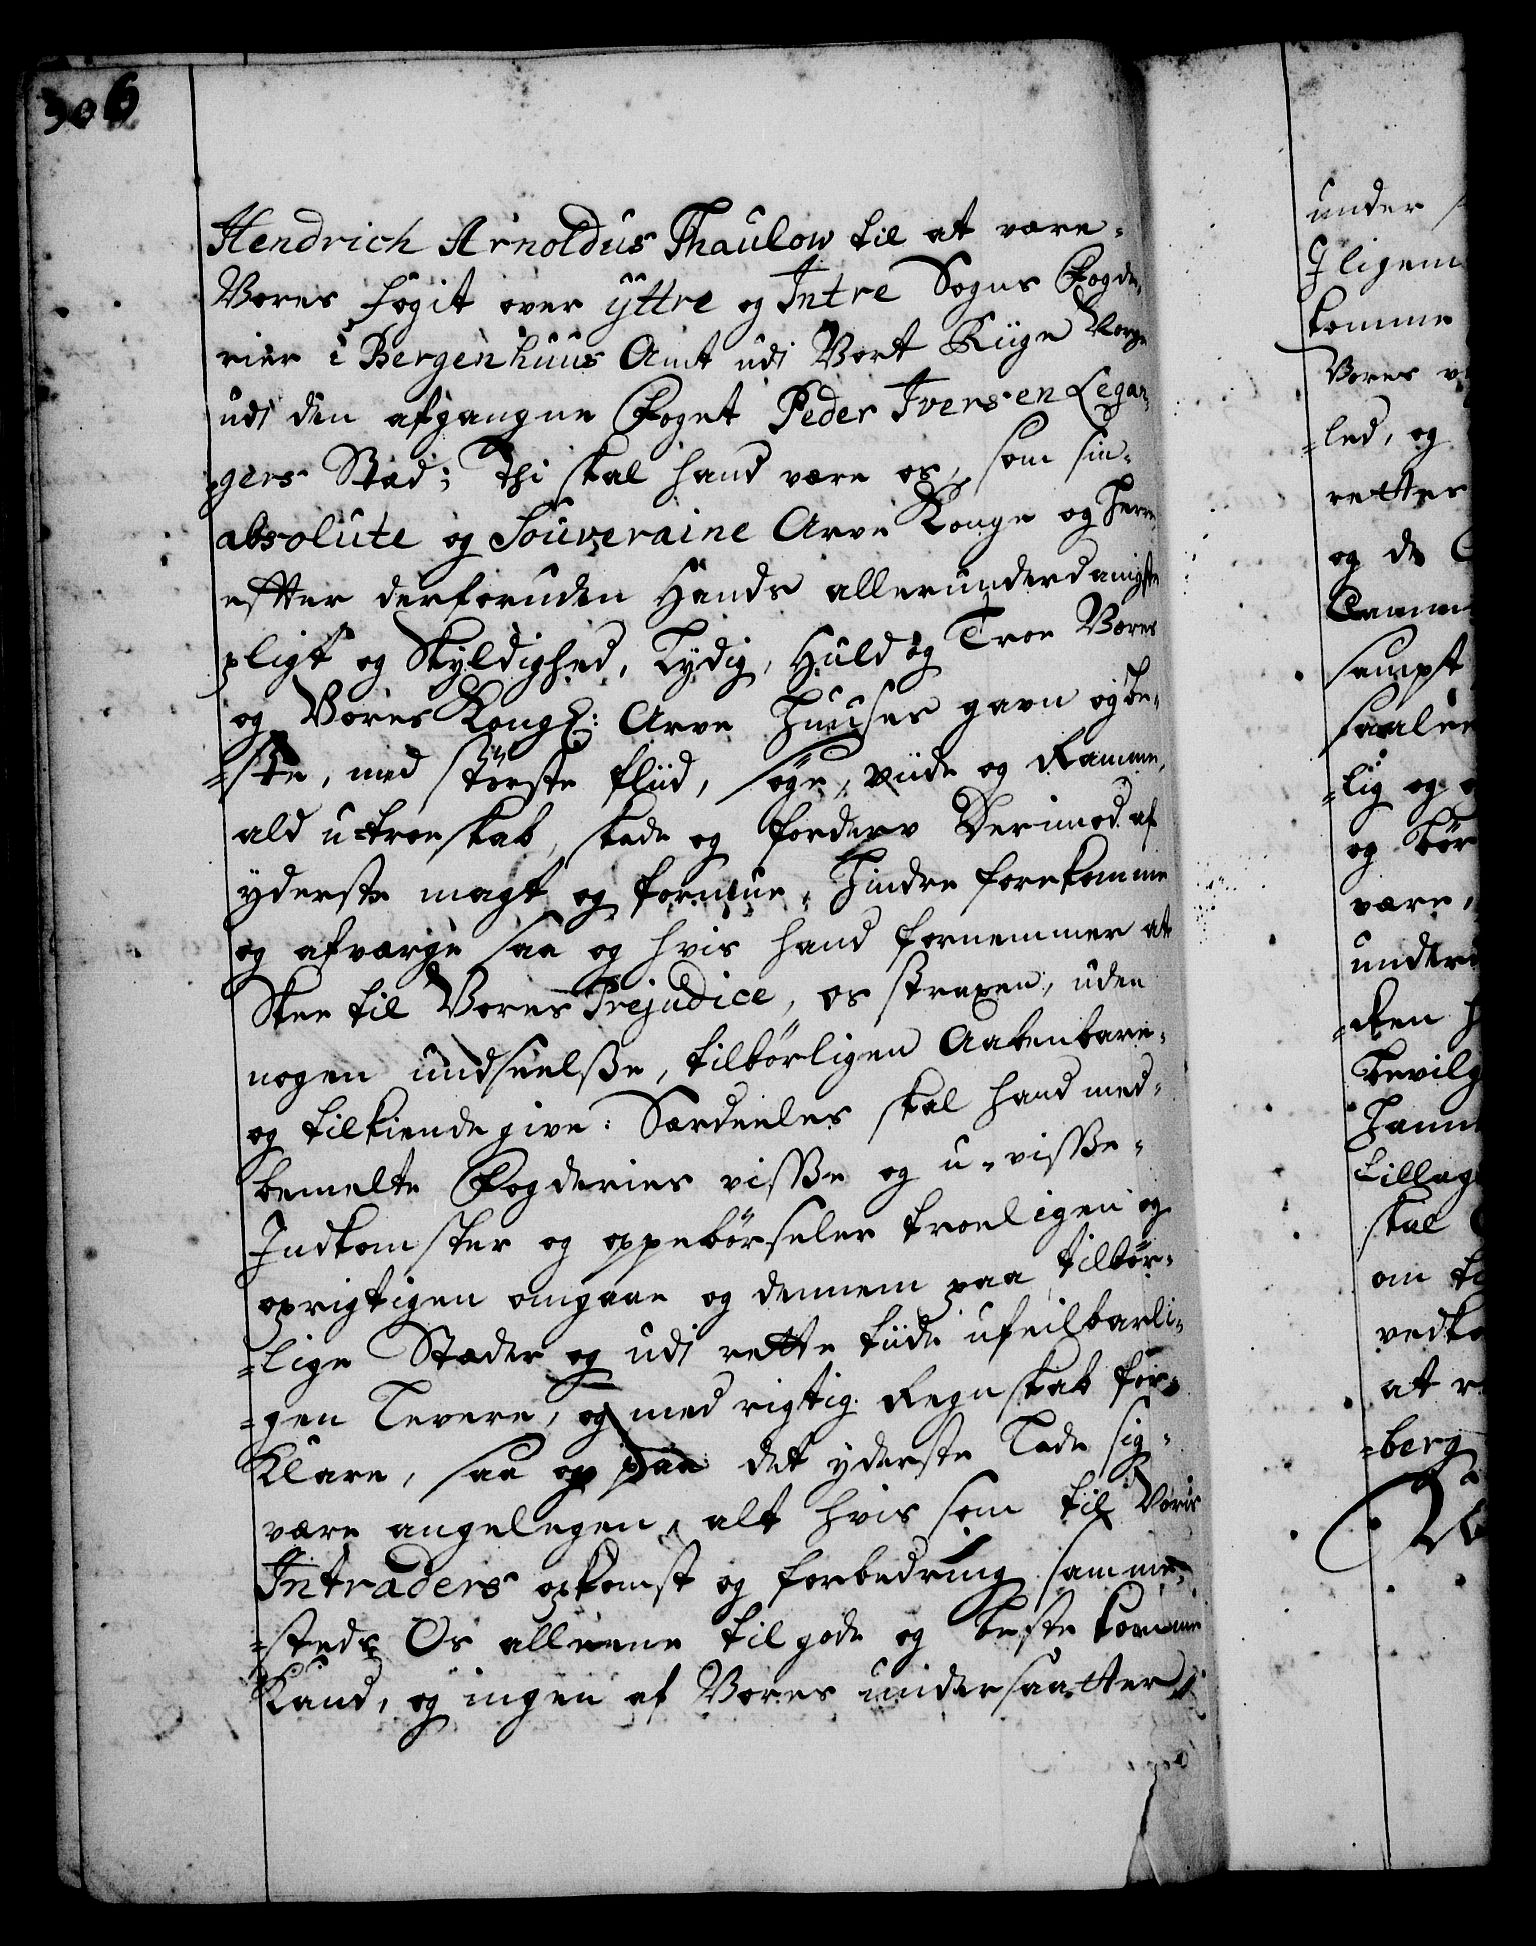 306
Hendrich Arnoldus Thaulow til at være
Vores fogit over ÿttre og Intre Sogns Fogde,
rier i Bergenhuus Amt udi Vort Riige Norge
udi den afgangne Foget Peder Iversen Legan,
gers Stæd; Thi skal hand være os, som sin
absolute og Souveraine Arve Konge og Herre
effter derforuden Hands allerunderdanigste
pligt og Skyldighed, Lydig, Huld og Troe Vores
og Vores Kongl: Arve Huuses gavn og be-
=ste, med störste fliid, söge, viide og Ramme,
ald u-troeskab, skade og forderv Derimod af
yderste magt og formue, Hindre forekomme
og afværge saa og hvis hand fornemmer at
Skee til Vores Prejudice, os straxen, uden
nogen undseelße, tilbörligen Aabenbare
og tilkiende give: Særdeeles skal hand med
bemelte Fogderies visße og u-visße
Indkomster og oppebörseler troeligen og
oprigtigen omgaae og dennem paa tilbör-
=lige Stæder og udi rette tiide ufeilbarli-
=gen Levere, og med rigtig Regnskab for-
Klare, saa og paa det yderste Lade sig
være angelegen, alt hvis som til Voris
Intraders opkomst og forbedring samme-
=steds Os alleene til gode og beste komme
Kand, og ingen af Vores undersaatter
under
Iligem
komme
Vores
=led, og
rettes
og de
Camm
sampt
saalee
=lig og
og bör
være,
under
=cken
bevilg
Hann
tillag
skal
om
vedko
at
=berg